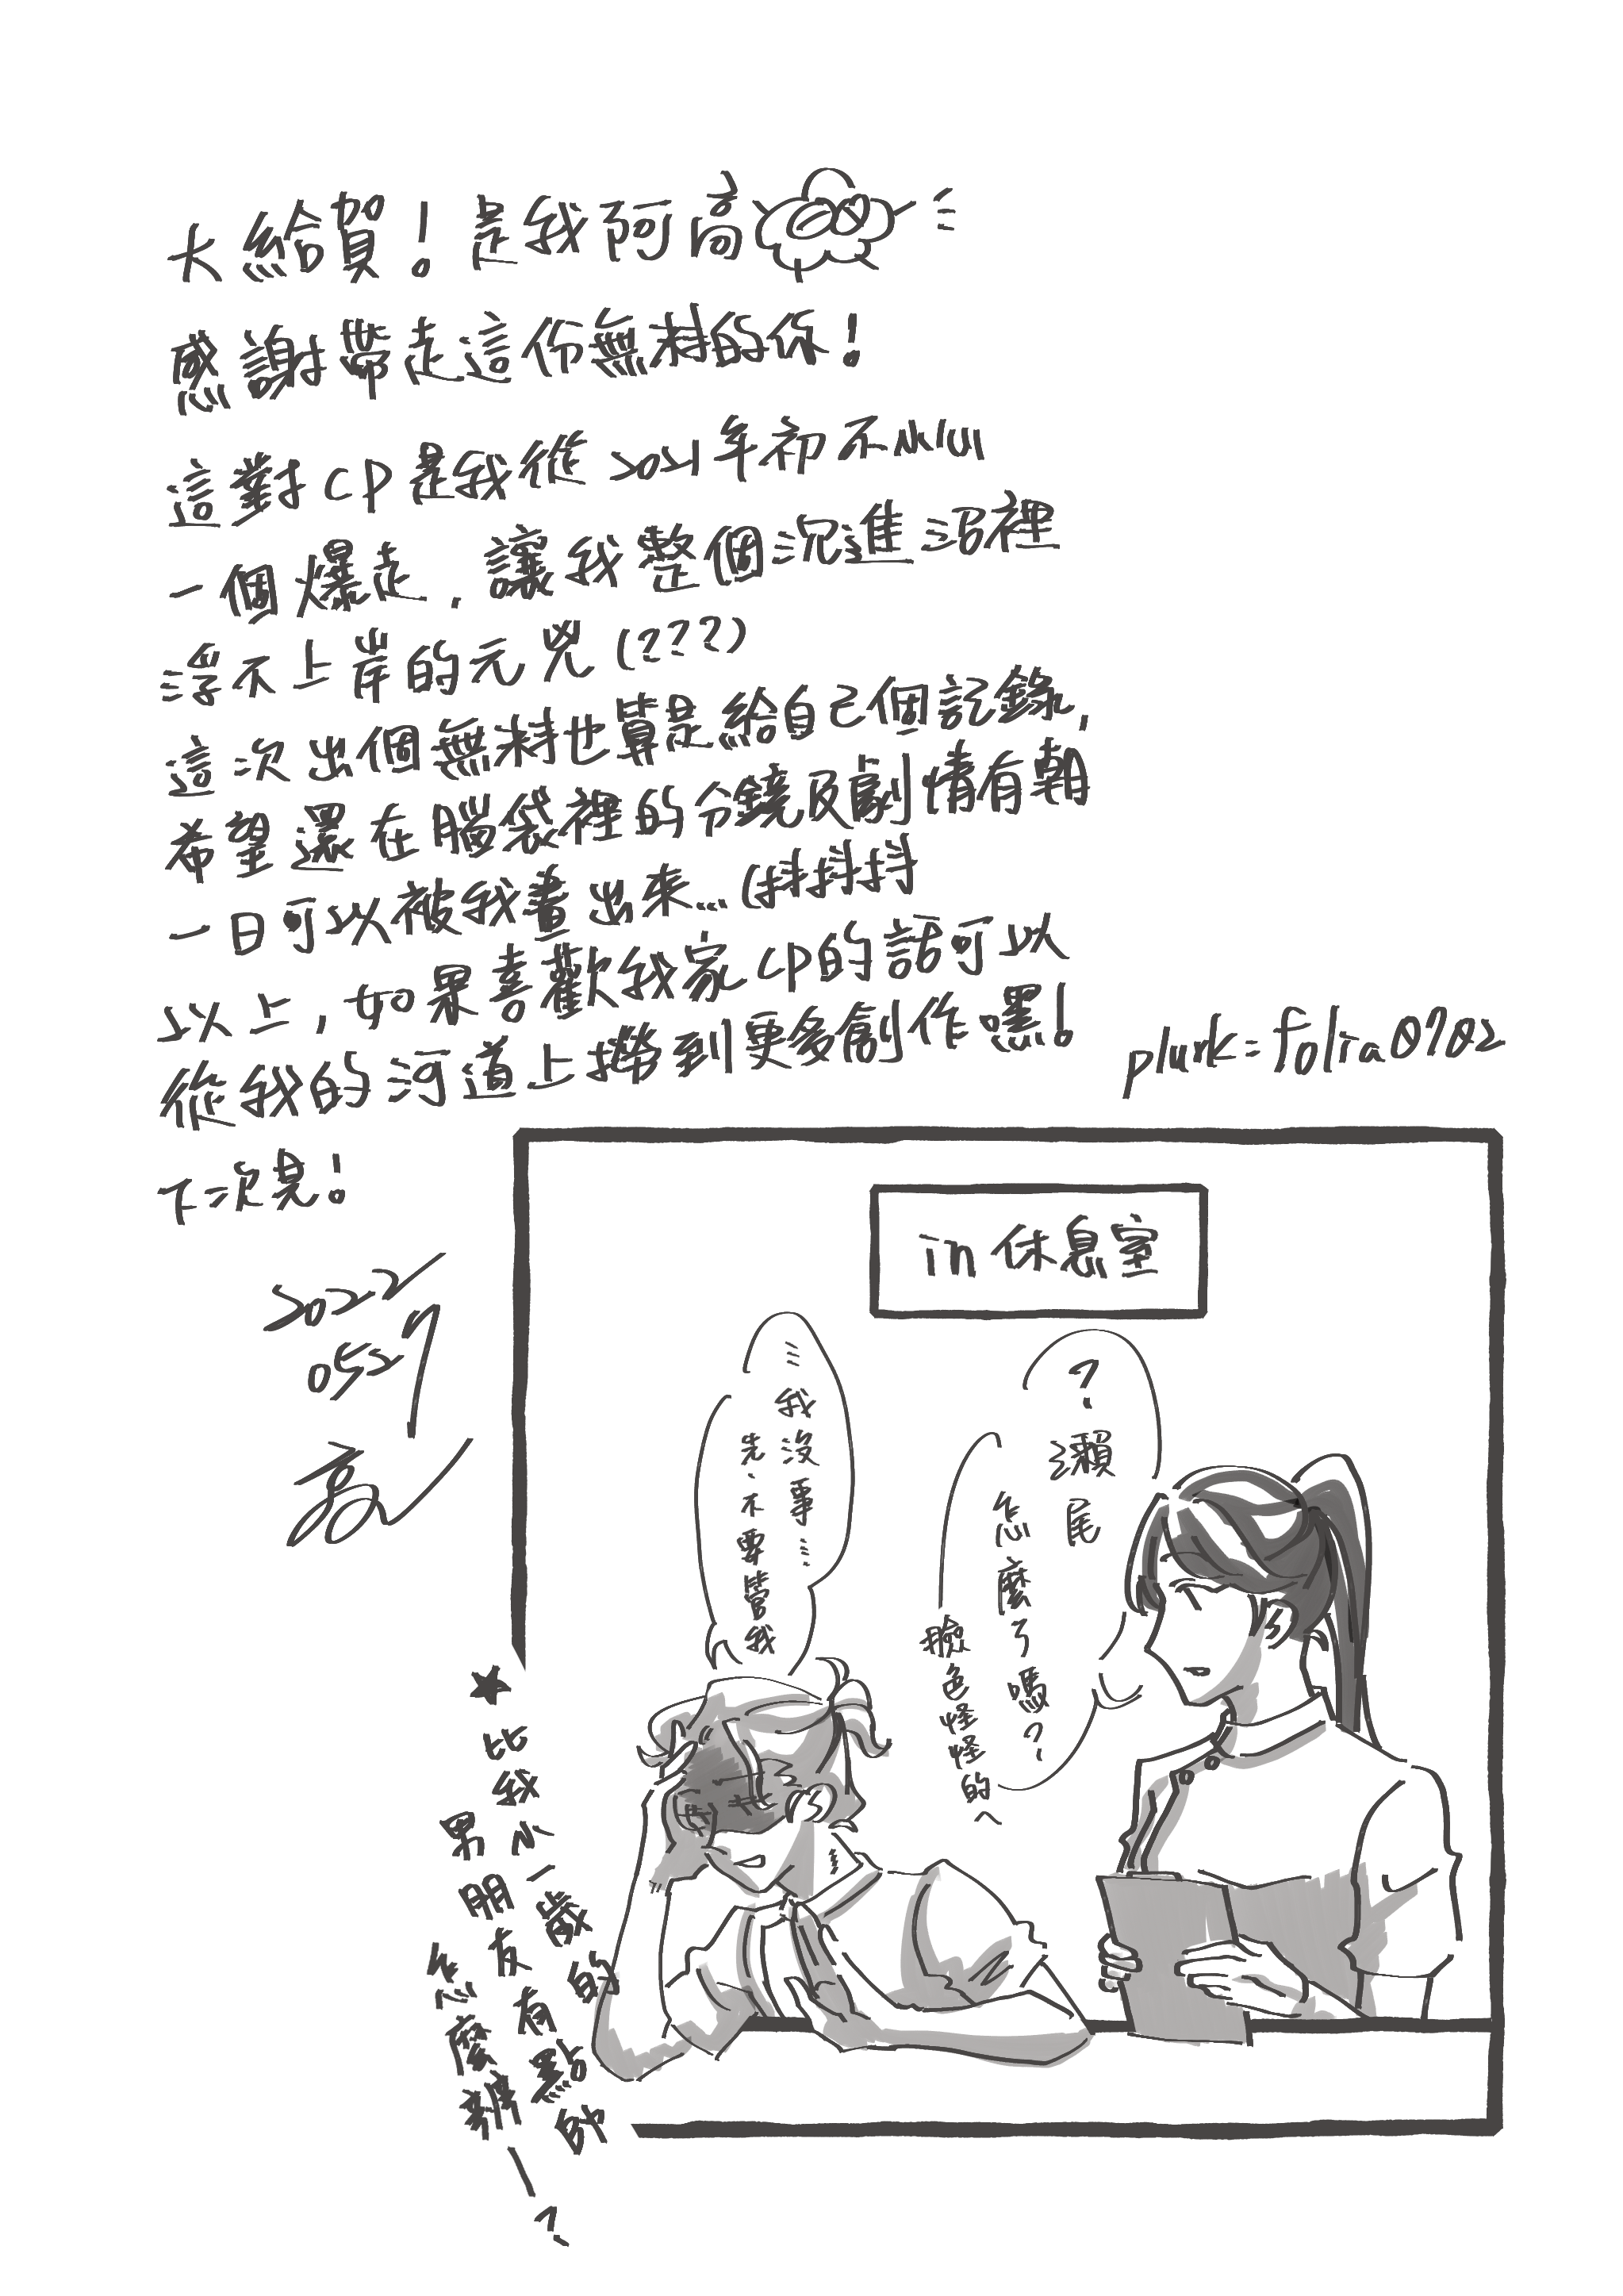 大給賀！是我阿高
感謝帶走這份無料的你！
這對CP是我從2021年初不小心
一個爆走，讓我整個沉進沼裡
浮不上岸的元兇(???)
這次出個無料也算是給自己個記錄，
希望還在腦袋裡的分鏡及劇情有朝
一日可以被我畫出來...(抖抖抖
以上，如果喜歡我家CP的話可以
從我的河道上撈到更多創作嘿！
plurk=folia0702
下次見！
2022
0527
高
in 休息室
？瀨尾
怎麼了嗎？
臉色怪怪的へ
⋯我沒事⋯
先、不要管我
★比我小一歲的
男朋友有點帥
怎麼辦ー？